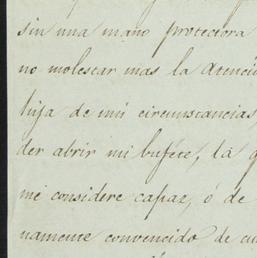 sin una mano protectora
no molestar mas la Atenci
hija de mis circunstancias,
der abrir mi bufete, la q
me considere capaz, ó de
namente convencido de cu